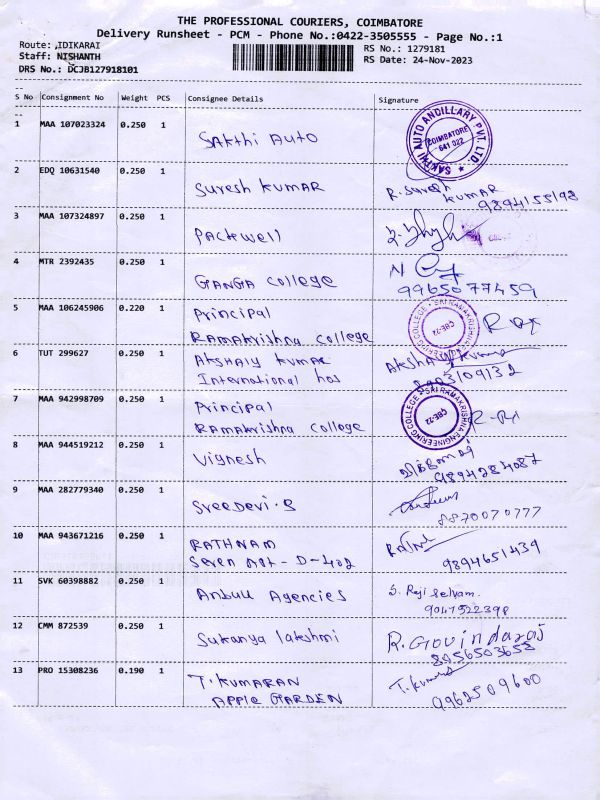 THE PROFESSIONAL COURIERS, COIMBATORE
Delivery Runsheet - PCM - Phone No.:0422-3505555 - Page No.:1
Route: ,IDIKARAI
RS No.: 1279181
Staff: NISHANTH
RS Date: 24-Nov-2023
DRS No.: DCJB127918101
S No Consignment No Weight PCS Consignee Details Signature
1 MAA 107023324 0.250 1 Sakthi Auto
SAKTHI AUTO ANCILLARY PVT. LTD.
COIMBATORE
641 022
2 EDQ 10631540 0.250 1 Suresh Kumar R. Suresh Kumar
9894155198
3 MAA 107324897 0.250 1 Packwell
4 MTR 2392435 0.250 1 Ganga College
9965077459
5 MAA 106245906 0.220 1 Principal
Ramakrishna College
SRI RAMAKRISHNA ENGINEERING COLLEGE
CBE-22
6 TUT 299627 0.250 1 Akshaiy Kumar
International hos
7 MAA 942998709 0.250 1 Principal
Ramakrishna College
SRI RAMAKRISHNA ENGINEERING COLLEGE
CBE-22
8 MAA 944519212 0.250 1 Vignesh
9894284087
9 MAA 282779340 0.250 1 SreeDevi.S
8870070777
10 MAA 943671216 0.250 1 Rathnam
Seven Apt - D-402
9894651439
11 SVK 60398882 0.250 1 Anbuu Agencies S. Reji Selvam.
9047522398
12 CMM 872539 0.250 1 Sukanya lakshmi R. Govindaraj
8056503658
13 PRO 15308236 0.190 1 T. Kumaran T. Kumaran
Apple Garden 9962509600